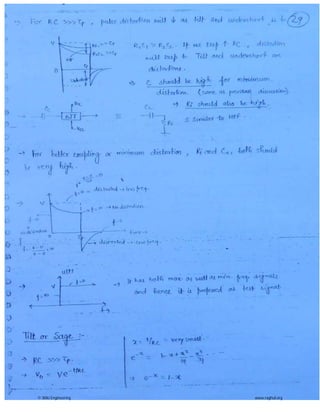 → For RC >>> Tp, pulse distortion will ↓ as tilt and undershoot is ↓
29
V
R₁C₁ >> Tp
R₂C₂ >> Tp
0
R₂C₂ > R₁C₁. If we keep ↑ RC, distortion
will keep ↓. Tilt and undershoot are
distortions.
→ C should be high for minimum
distortion. (same as previous discussion)
→ Ri should also be high.
≅ similar to HPF.
→ For better coupling or minimum distortion, Ri and Cc, both should
be very high.
distorted → low freq.
→ no distortion.
V
f → ∞
f → 0
time →
distorted → low freq.
→ f = 0
V
f →
→ It has both max as well as min. freq signals
and hence it is preferred as test signal
Tilt or Sage :-
→ RC >>> Tp.
→ V₀ = V e^-t/RC
x = t/RC = very small.
e^-x = 1 - x + x²/2! - x³/3! ...
→ e^-x = 1 - x
© Wiki Engineering
www.raghul.org